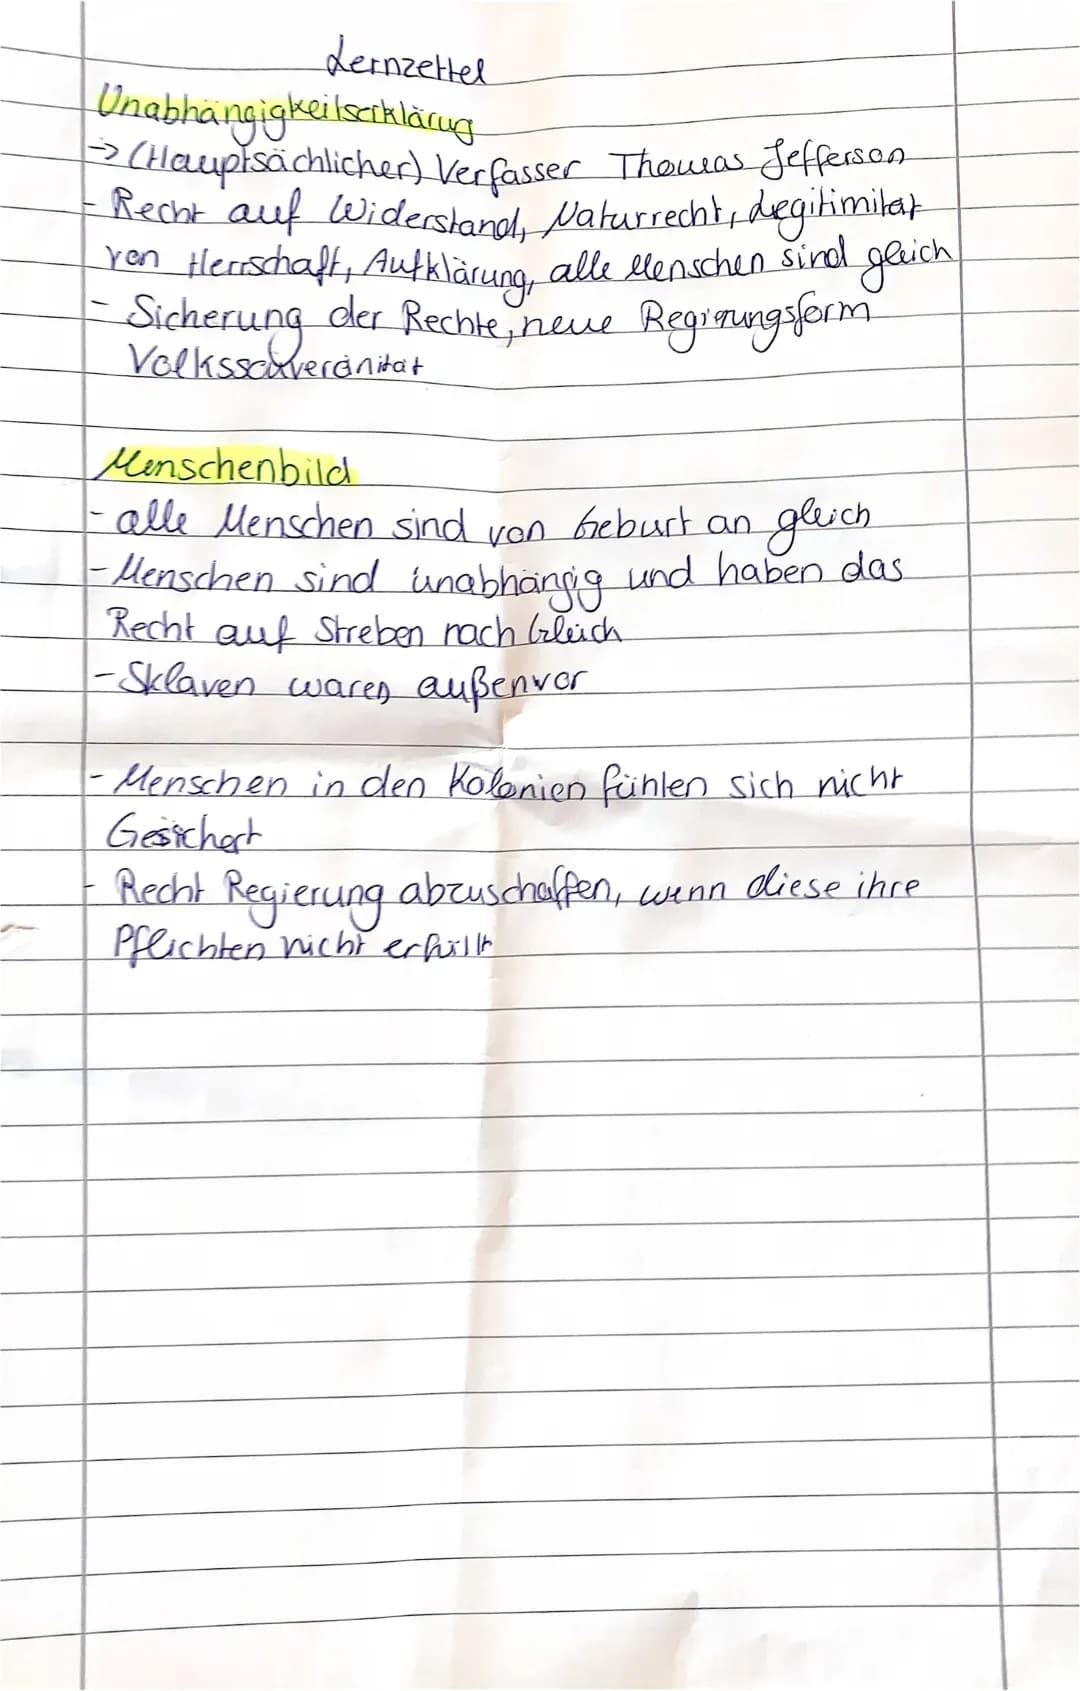 Lernzettel
Unabhängigkeitserklärug
→ (Hauptsächlicher) Verfasser Thomas Jefferson
- Recht auf Widerstand, Naturrecht, Legitimität
von Herrschaft, Aufklärung, alle Menschen sind gleich
- Sicherung der Rechte, neue Regierungsform
Volkssouveränität
Menschenbild
- alle Menschen sind von Geburt an gleich
- Menschen sind unabhängig und haben das
Recht auf Streben nach Gleich
- Sklaven waren außenvor
- Menschen in den Kolonien fühlen sich nicht
Gesichert
- Recht Regierung abzuschaffen, wenn diese ihre
Pflichten nicht erfüllt